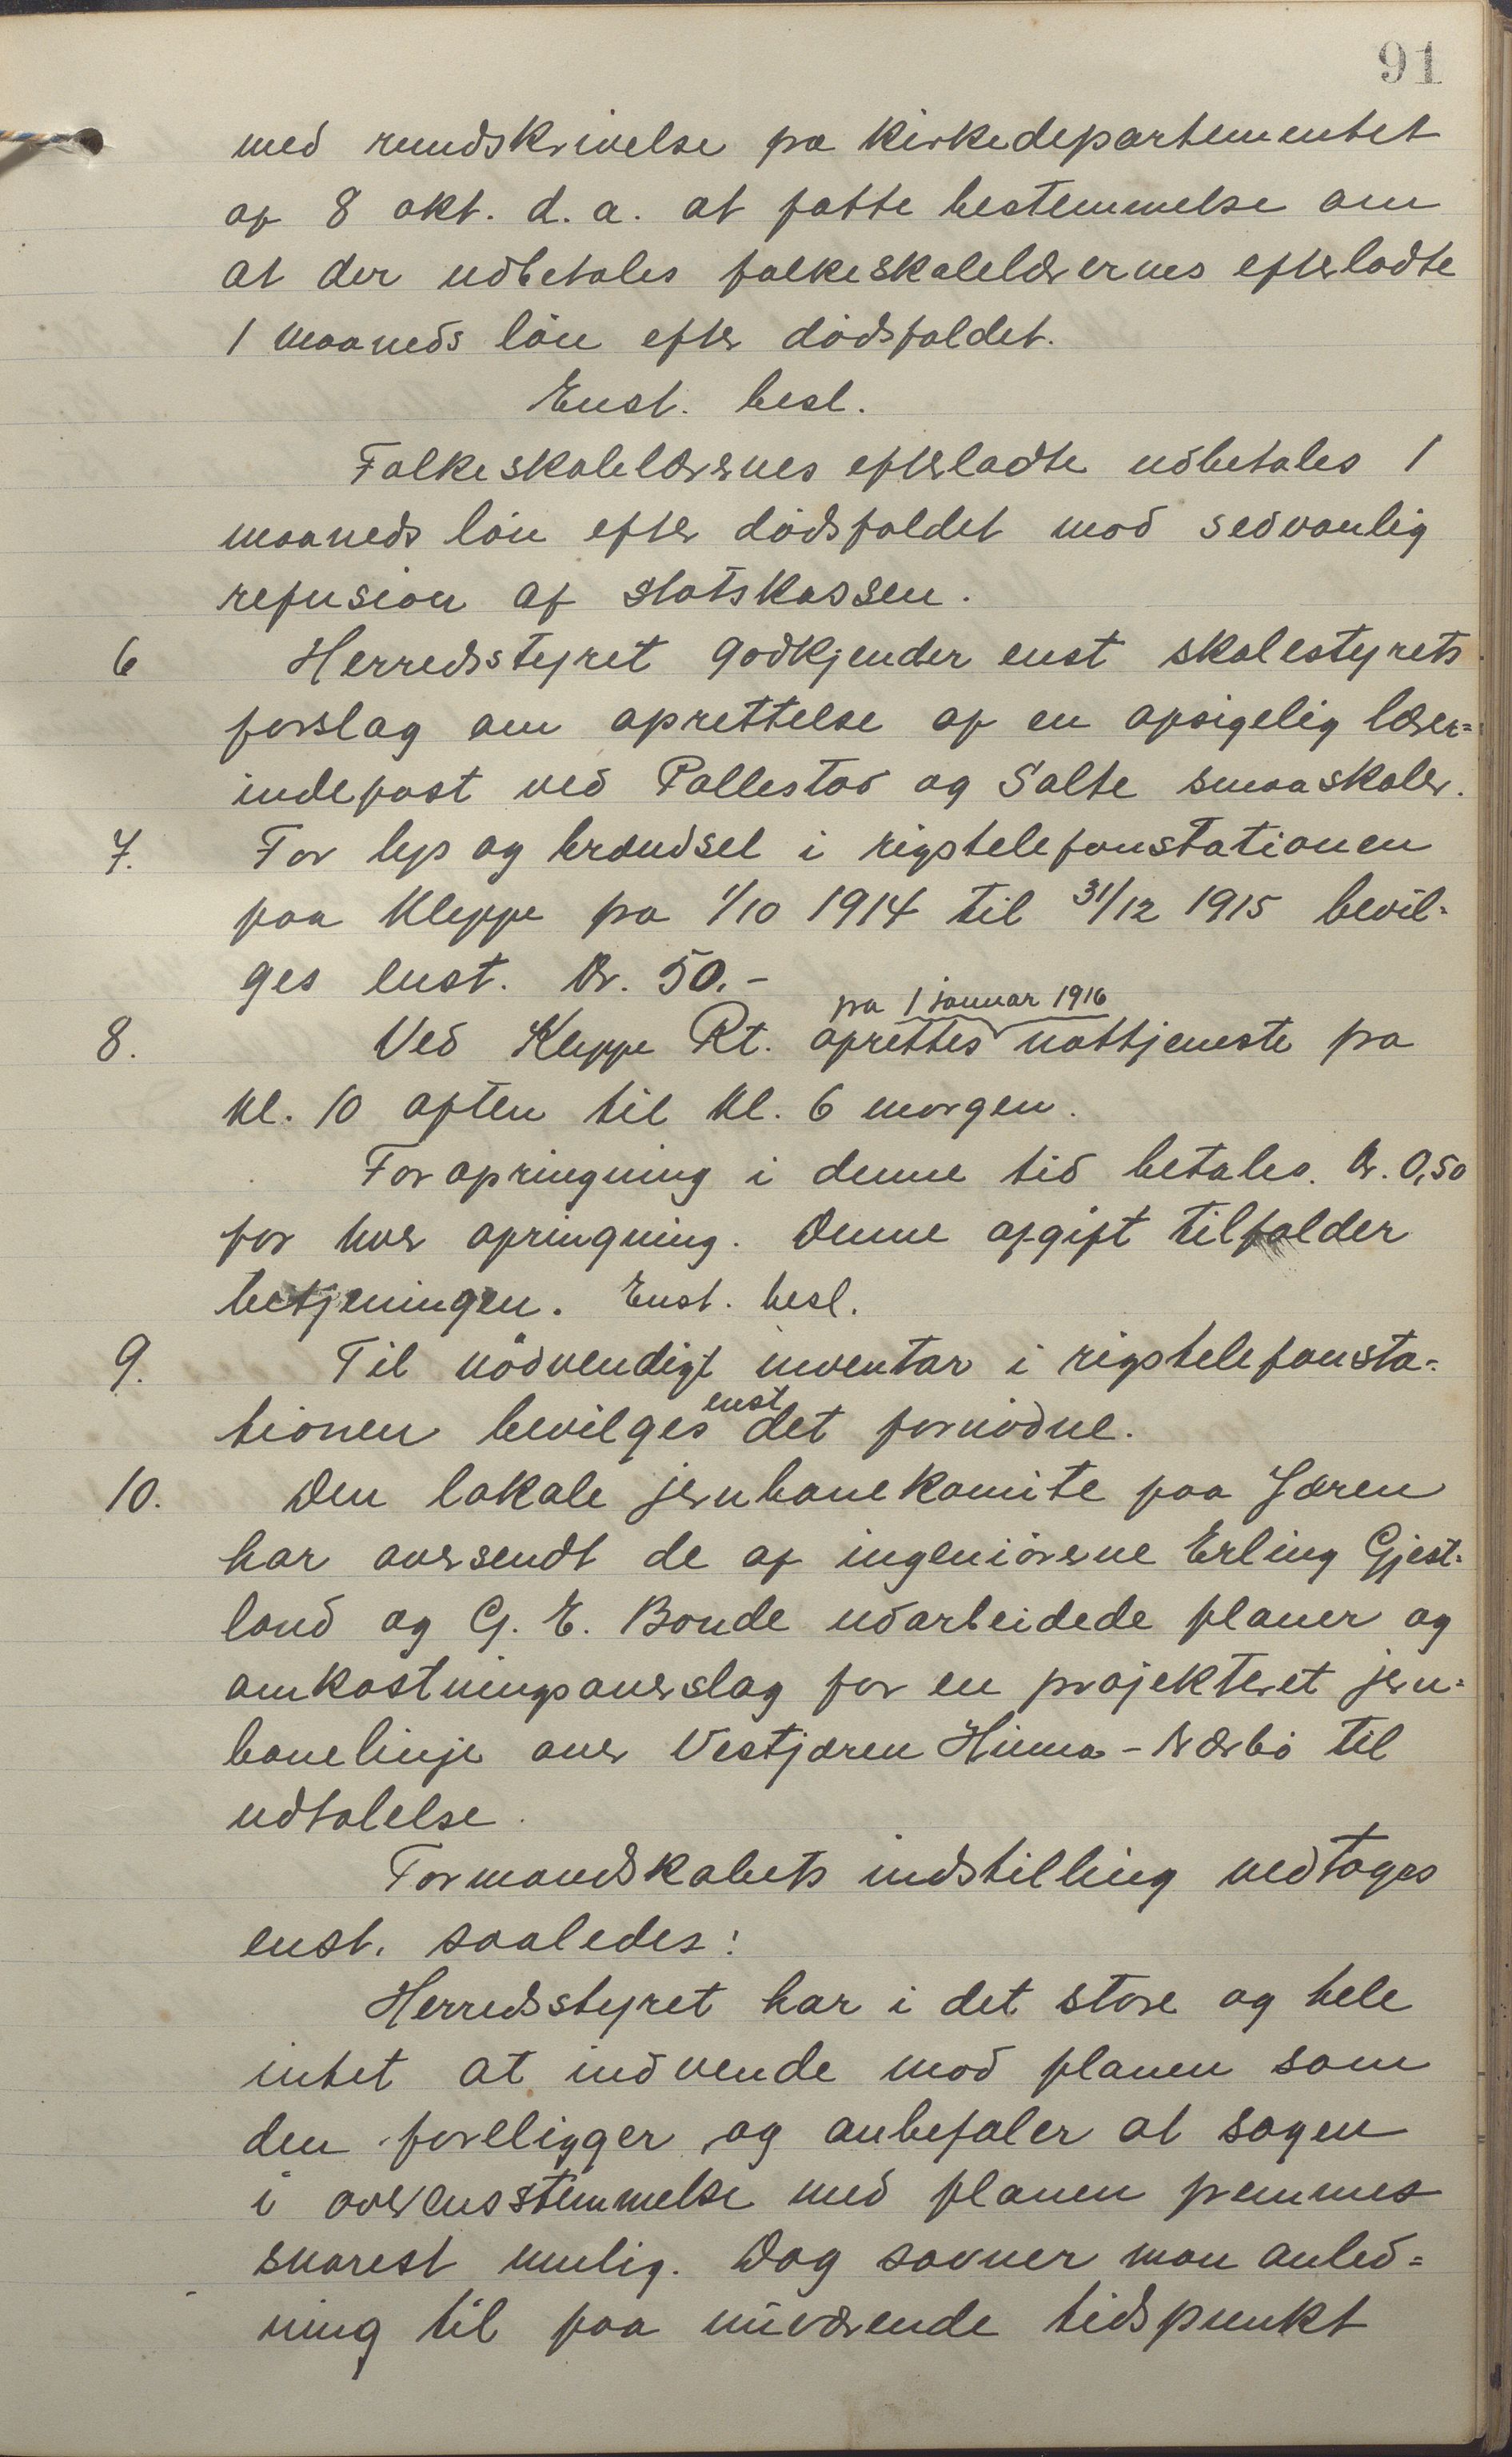 91
med rundskrivelse fra kirkedepartementet
af 8 okt. d. a. at fatte bestemmelse om
at der udbetales folkeskolelærernes efterladte
1 maaneds løn efter dødsfaldet.
Enst. besl.
Folkeskolelærernes efterladte udbetales 1
maaneds løn efter dødsfaldet mod sedvanlig
refusion af statskassen.
6 Herredsstyret godkjender enst skolestyrets
forslag om oprettelse af en opsigelig lærer=
indepost ved Pollestad og Salte smaaskoler.
7. For lys og brændsel i rigstelefonstationen
paa Kleppe fra 1/10 1914 til 31/12 1915 bevil=
ges enst. Kr. 50.-
fra 1 januar 1916
8. Ved Kleppe Rt. oprettes nattjeneste fra
kl. 10 aften til kl. 6 morgen.
For opringning i denne tid betales. Kr. 0,50
for hver opringning. Denne afgift tilfalder
betjeningen. Enst. besl.
9. Til nödvendigt inventar i rigstelefonsta=
enst
tionen bevilges det fornødne.
10. Den lokale jernbanekomite paa Jæren
har oversendt de af ingeniörerne Erling Gjest=
land og G. E. Bonde udarbeidede planer og
omkostningsoverslag for en projekteret jern=
banelinje over Vestjæren Hinna - Nærbø til
udtalelse.
Formandskabets indstilling vedtoges
enst. saaledes:
Herredsstyret har i det store og hele
intet at indvende mod planen som
den foreligger og anbefaler at sagen
i overensstemmelse med planen fremmes
snarest mulig. Dog savner man anled=
ning til paa nuværende tidspunkt